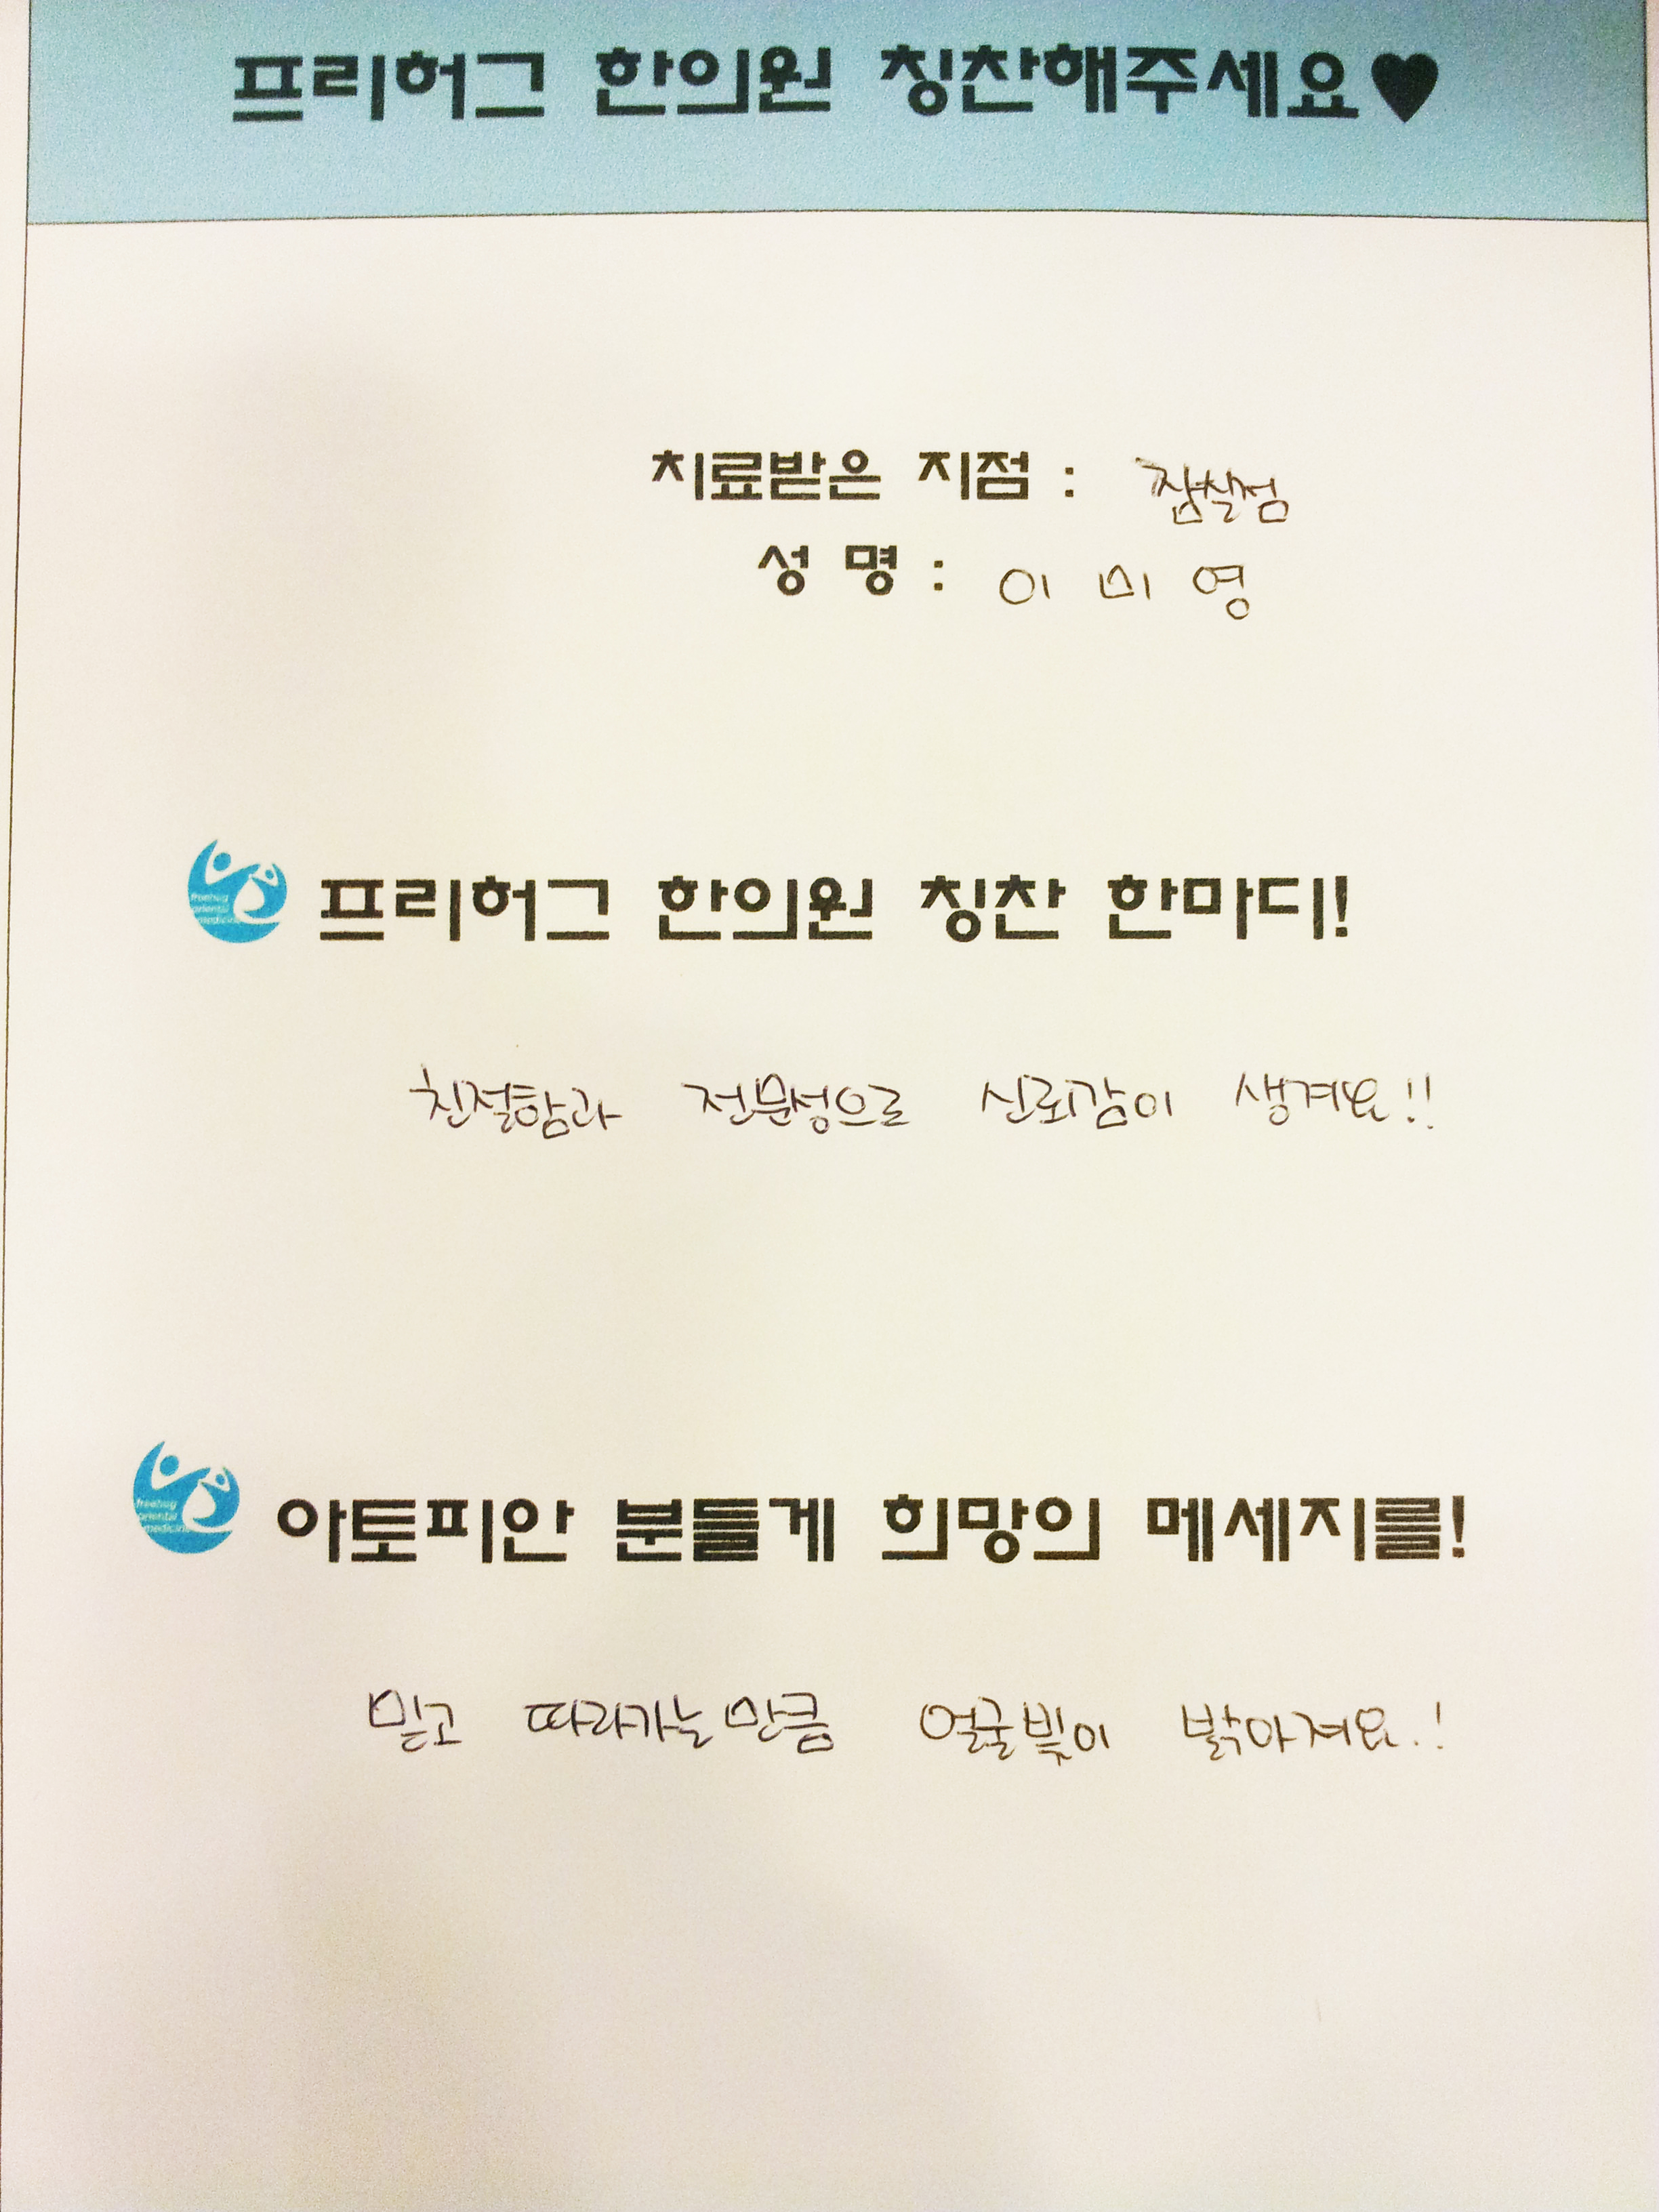 프리허그 한의원 칭찬해주세요♥
치료받은 지점 : 잠실점
성 명 : 이 미 영
freehug
oriental
medicine
프리허그 한의원 칭찬 한마디!
친절함과 전문성으로 신뢰감이 생겨요!!
freehug
oriental
medicine
아토피안 분들게 희망의 메세지를!
믿고 따라가는 만큼 얼굴빛이 밝아져요.!